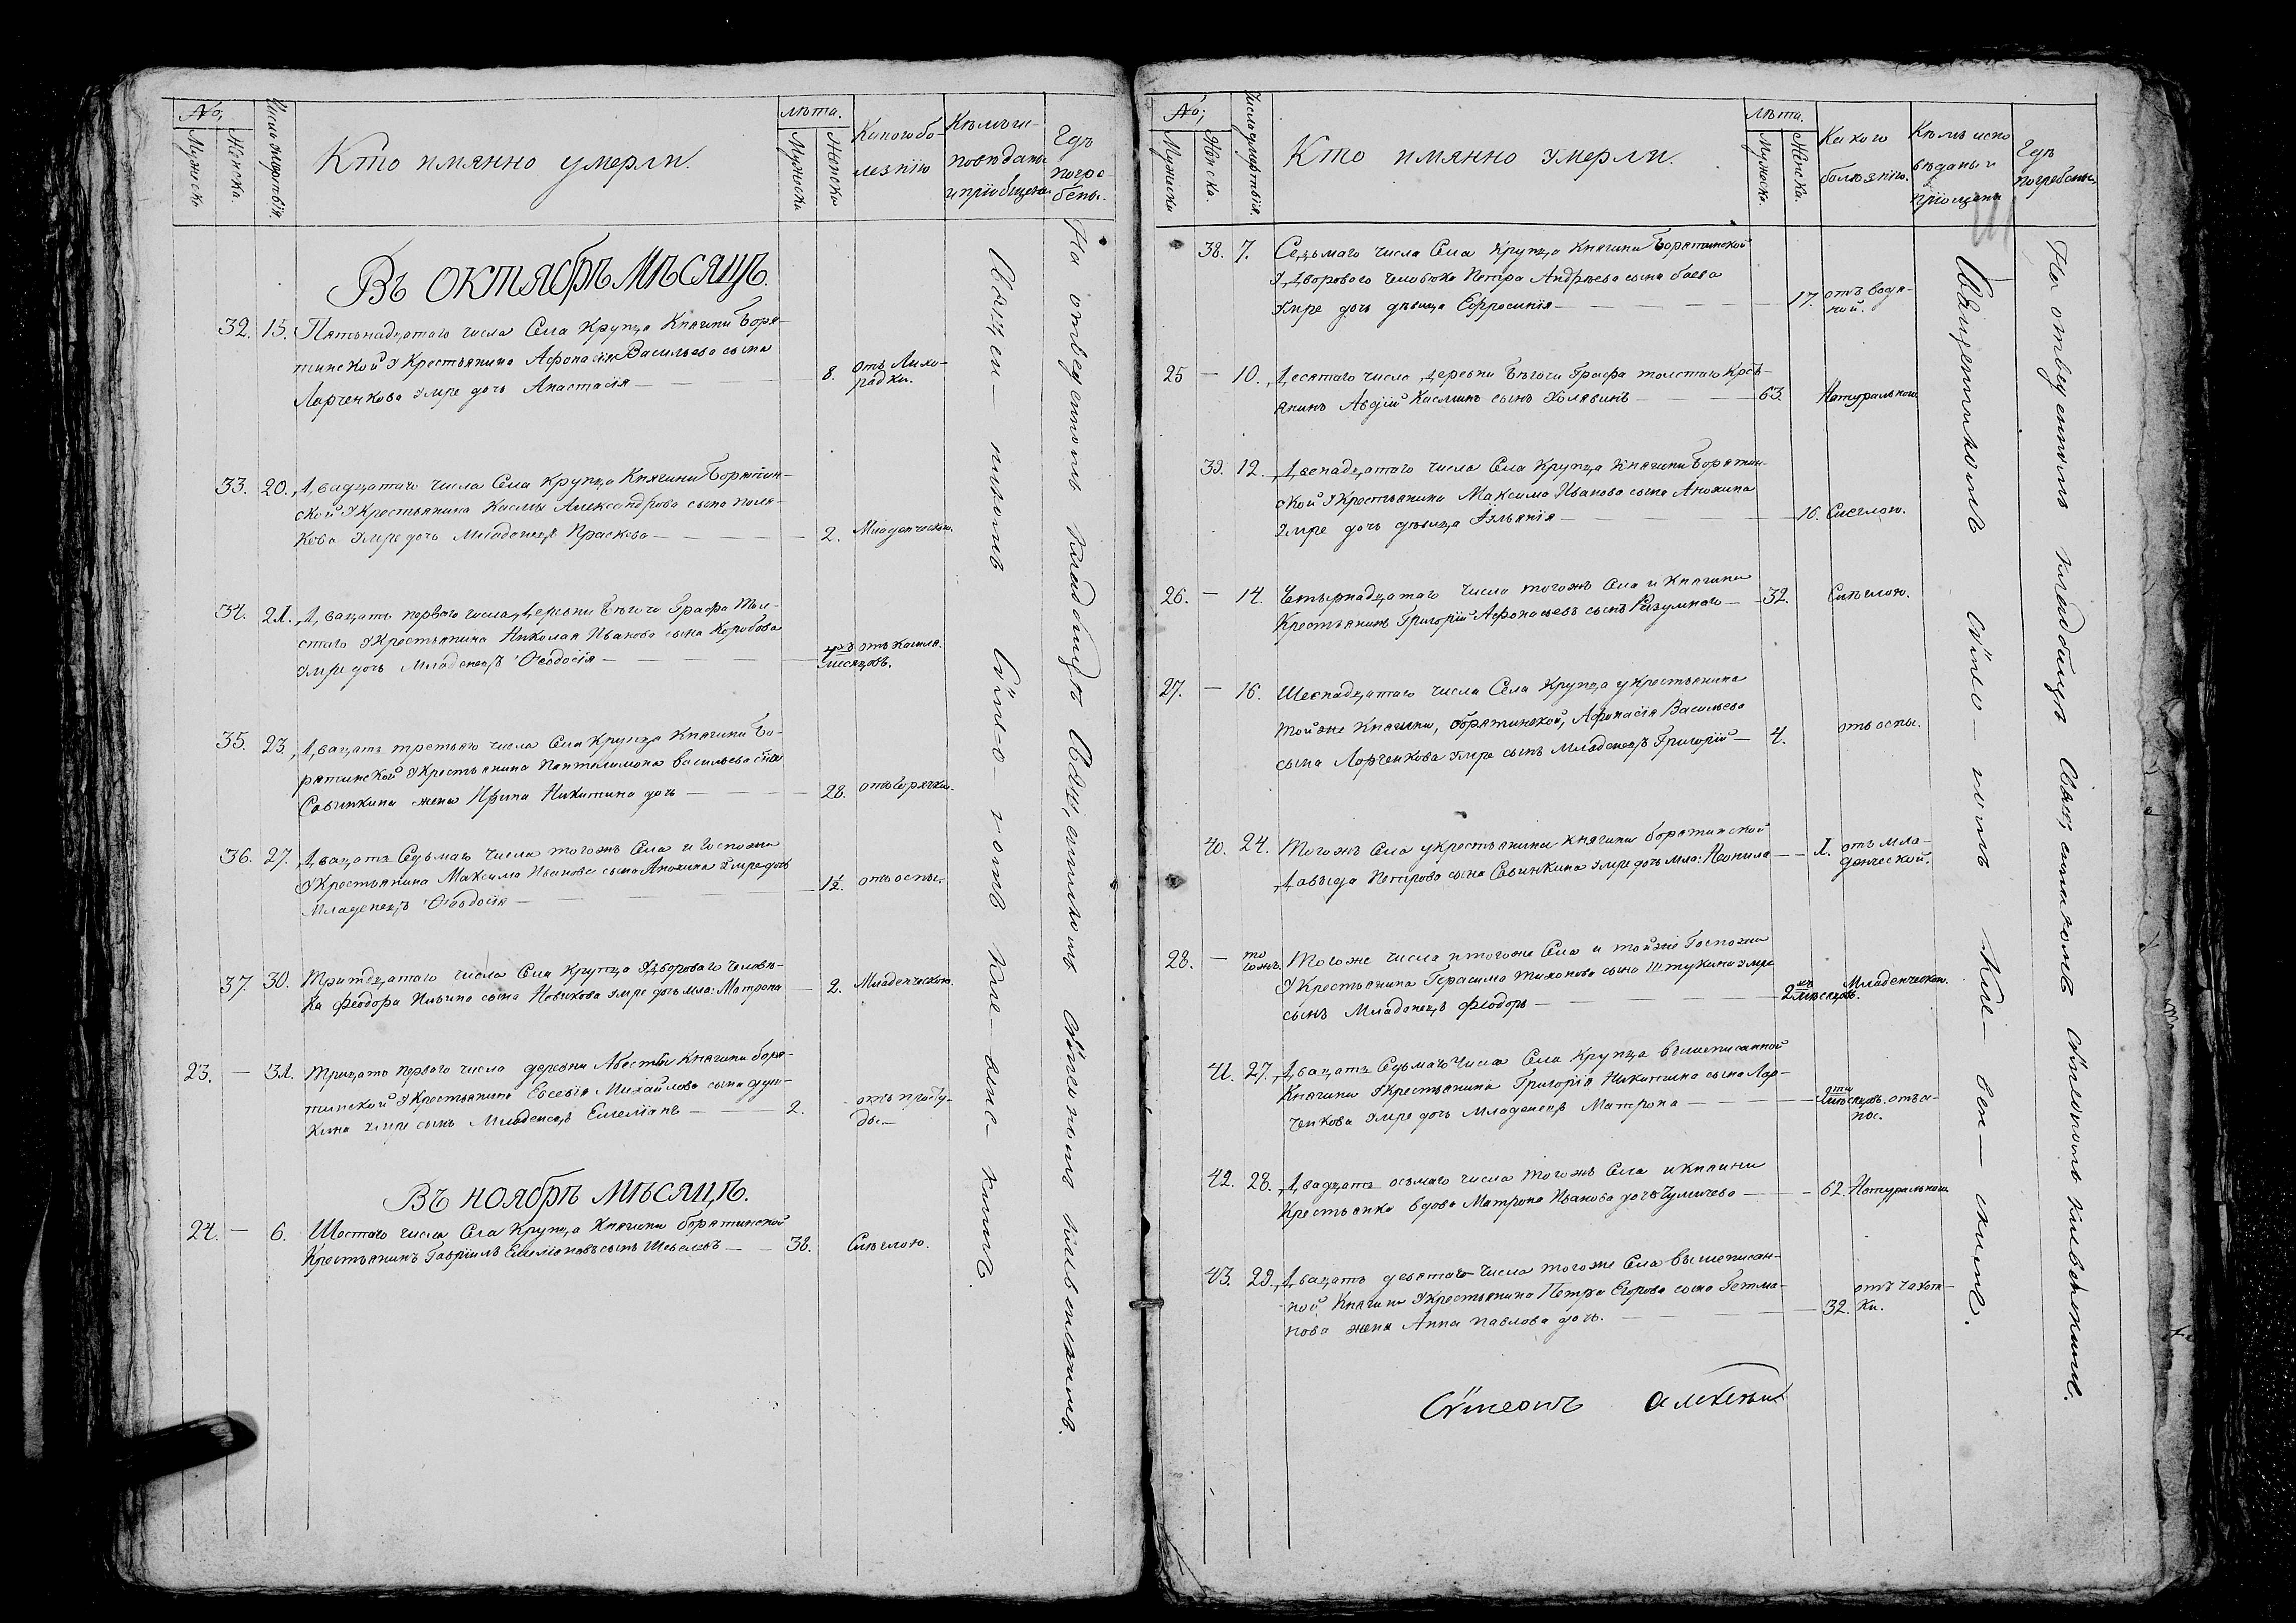 №,
Мужеска
Женска.
Число смертiя.
Кто имянно умерли.
лѣта.
Мужеска
Женска
Какого бо-
лезнiю
Кемъ ис-
поведаны
и прiобщены
Гдѣ
погре-
бены.
Въ октябрѣ мѣсяцѣ.
32. 15. Пятьнадцатаго числа Села Крупца Княгини Боря-
тинской у Крестьянина Афонасiя Васильева сына
Ларченкова умре дочь Анастасiя — 8. отъ Лихо-
радки.
33. 20. Двадцатаго числа Села Крупца Княгини Борятин-
ской у Крестьянина Касмы Александрова сына Поля-
кова умре дочь Младенецъ Праскева — 2. Младенческою.
34. 21. Двацать перваго числа деревни Бегочи Графа Тол-
стаго у Крестьянина Николая Иванова сына Коробова
умре дочь Младенецъ Ѳеодосiя — месяцовъ. отъ кашля.
35. 23. Двацать третьяго числа Села Крупца Княгини Бо-
рятинской у Крестьянина Пантелимона Васильева сна
Савинкина жена Ирина Никитина дочь — 28. отъ Горячки.
36. 27. Двацать Седьмаго числа тогожъ Села и Госпожи
у Крестьянина Максима Иванова сына Анохина умре дочь
Младенецъ Ѳеодосiя — 1½. отъ оспы.
37. 30. Тритцатаго числа Села Крупца у Двороваго человѣ-
ка Феодора Ильина сына Новикова умре дочь мла: Матрона — 2. Младенческою.
23. — 31. Трицать перваго числа деревни Княгини Боря-
тинской у Крестьянина Евсевiя Михайлова сына
кина умре сынъ Младенецъ Емелiанъ — 2. отъ просту-
ды.—
Въ ноябрѣ мѣсяцѣ.
24. — 6. Шестаго числа Села Крупца Княгини Борятинской
Крестьянинъ Гаврiилъ Емелiановъ сынъ Шевелевъ — 38.
Священникомъ Сѵмеономъ
На отведенномъ кладбищѣ Священникомъ Сѵмеономъ
№,
Мужеска
Женска.
Число умертвiя.
Кто имянно умерли.
лѣта.
Мужеска.
Женска.
Какого
болѣзнiю.
Кѣмъ испо
вѣданы и
прiощены
Гдѣ
погребены.
38. 7. Седьмаго числа Села Крупца Княгини Борятинской
у Двороваго человѣка Петра Андрѣева сына Боева
умре дочь дѣвица Ефросинiя — 17. отъ водя-
ной.
25 — 10. Десятаго числа деревни Бѣгочи Графа толстаго Кресть-
янинъ Авдiй Касминъ сынъ Холявинъ — 63. Натуральною
39. 12. Двенадцатаго числа Села Крупца Княгини Борятин-
ской у Крестьянина Максима Иванова сына Анохина
умре дочь дѣвица Iульянiя — 16.
26. — 14. Четырнадцатаго числа тогожъ Села и Княгини
Крестьянинъ Григорiй Афонасьевъ сынъ Разумного — 32.
27. — 16. Шеснадцатаго числа Села Крупца у Крестьянина
тойже Княгини, Борятинской, Афонасiя Васильева
сына Ларченкова умре сынъ младенецъ Григорiй — 4. отъ оспы.
40. 24. Тогожъ Села у крестьянина княгини Борятинской
Давыда Петрова сына Савинкина умре дочь мла: Неонила — 1. отъ мла-
денческой.
28. — то
гожъ. Тогоже числа и тогоже Села и тойже Госпожи
у Крестьянина Герасима Тихонова сына Штукина умре
сынъ Младенецъ Феодоръ — 2 мѣсяцовъ. Младенческою.
41. 27. Двацать Седьмаго числа Села Крупца вышеписанной
Княгини у Крестьянина Григорiя Никитина сына Лар-
ченкова умре дочь Младенецъ Матрона — мѣсяцовъ.
42. 28. Двадцать осьмаго числа тогожъ Села и княгини
Крестьянка вдова Матрона Иванова дочь Чумичева — 62. Натуральною.
43. 29. Двацать девятаго числа тогоже Села вышеписан-
ной Княгини у крестьянина Петра Егорова сына Гетма-
нова жена Анна Павлова дочь. — 32. отъ чахот-
ки.
Священникомъ Сѵмеономъ
На отведенномъ кладбищѣ Священникомъ Сѵмеономъ
Сѵмеонъ